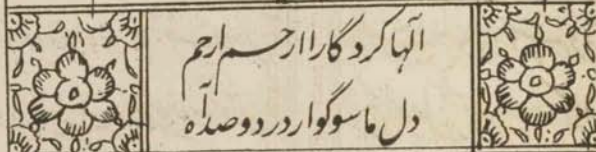 آلها کردگارا ارحم ارحم
دل ما سوگوار درد و صد آه